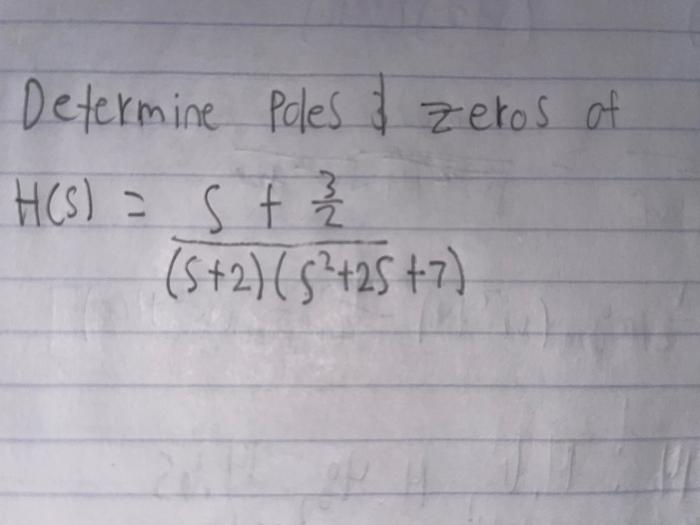 Determine Poles & zeros of
H(s) = s + 3/2
(s+2)(s²+2s+7)